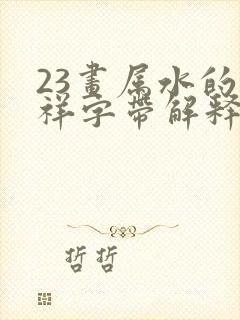 23畫屬水的
祥字帶解釋
哲哲